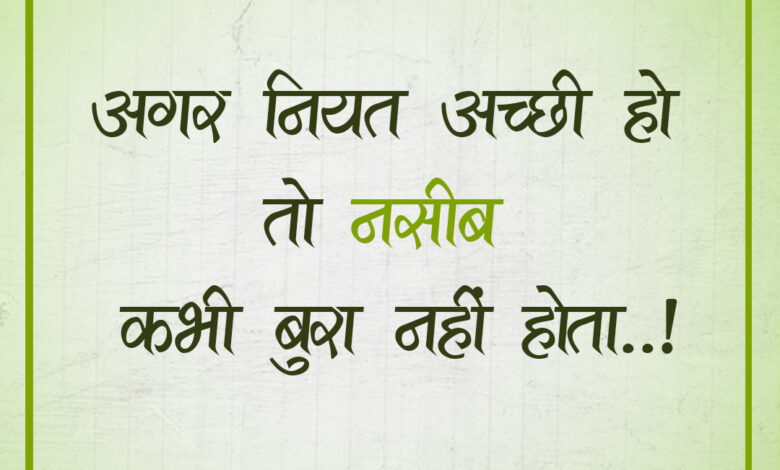 अगर नियत अच्छी हो
तो नसीब
कभी बुरा नहीं होता..!